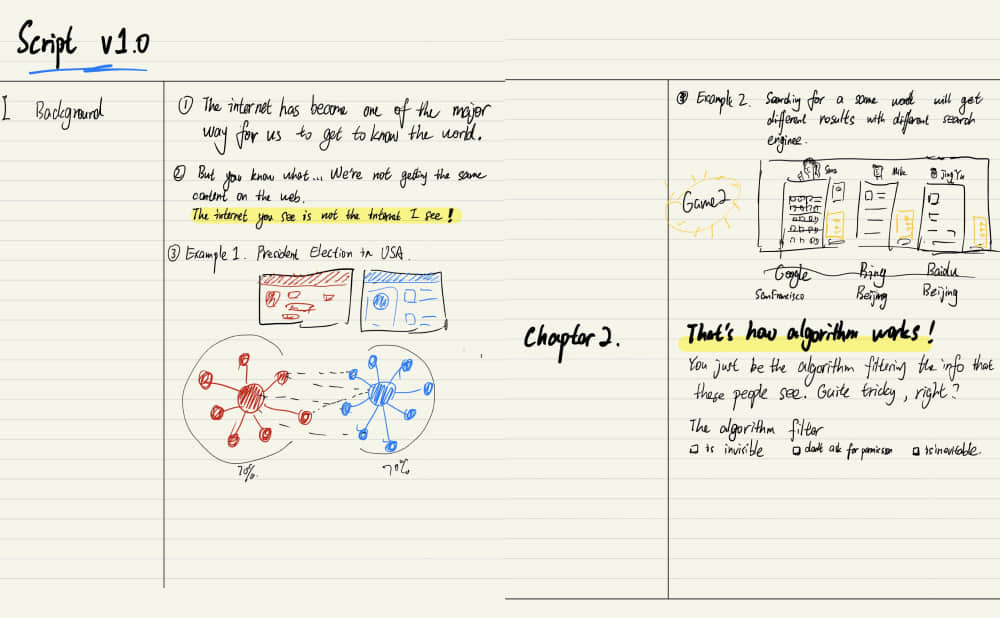 Script v1.0
I Background
① The internet has become one of the major
way for us to get to know the world.
② But you know what... We're not getting the same
content on the web.
The internet you see is not the Internet I see!
③ Example 1. President Election in USA.
70%.
70%
Example 2. Searching for a same word will get
different results with different search
engine.
Game 2
Sara
Mike
Jing Yu
Google
Bing
Baidu
San Francisco
Beijing
Beijing
Chapter 2.
That's how algorithm works!
You just be the algorithm filtering the info that
these people see. Quite tricky, right?
The algorithm filter
is invisible
don't ask for permission
is inevitable